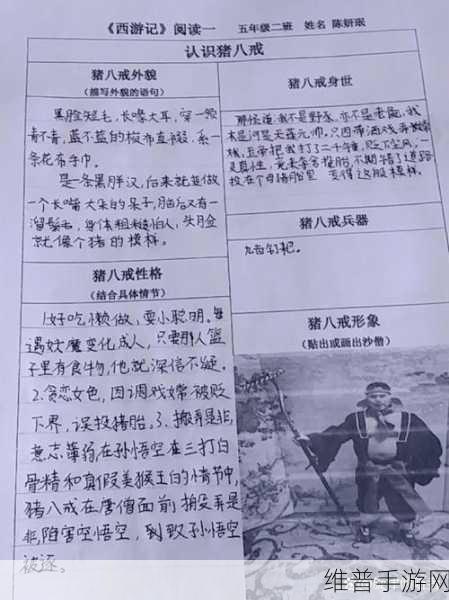 《西游记》阅读一 五年级二班 姓名 陈妍珉
认识猪八戒
猪八戒外貌
(描写外貌的语句)
黑脸短毛，长嘴大耳，穿一领
青不青，蓝不蓝的梭布直裰，系一
条花布手巾。
是一条黑胖汉，后来就变做
一个长嘴大朵的呆子，脑后又有一
溜鬃毛，身体粗糙怕人，头脸
就像个猪的模样。
猪八戒性格
(结合具体情节)
1.好吃懒做，耍小聪明。每
遇妖魔变化成人，只要那人篮
子里有食物，他就深信不疑。
2.贪恋女色，因调戏嫦被贬
下界，误投猪胎。3、搬弄是非，
意志薄弱，在孙悟空在三打白
骨精和真假美猴王的情节中，
猪八戒在唐僧面前 弄是
非，陷害空悟空，到致孙悟空
被逐。
猪八戒身世
那怪道：我不是野豕，亦不是老彘，我
本是河是天蓬元帅，只因带酒戏弄嫦
娥，玉帝把我打了二千锤，贬下尘凡，一
灵真性，竟来夺舍投胎，不期错了道路，
投在个母猪胎里，变得这般模样。
猪八戒兵器
九齿钉耙。
猪八戒形象
(贴出或画出沙僧)
维普手游网